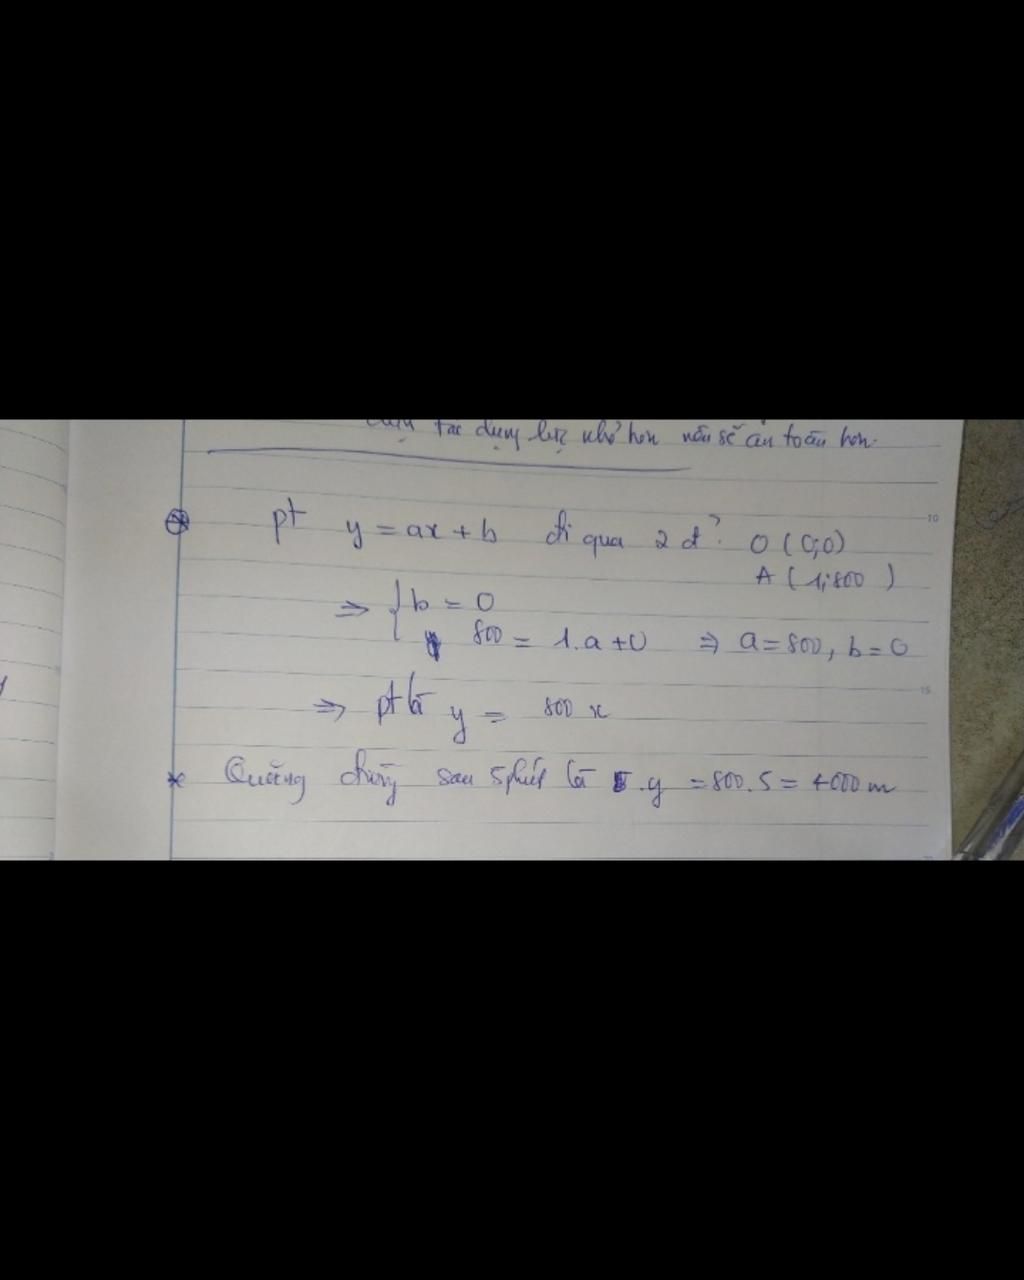 tác dụng lực nhỏ hơn nên sẽ an toàn hơn.
10
pt y = ax + b đi qua 2 đ? O (0;0)
A (1;800)
⇒ { b = 0
800 = 1.a + 0 ⇒ a = 800, b = 0
15
⇒ pt là y = 800 x
* Quãng đường sau 5 phút là 5.y = 800.5 = 4000 m